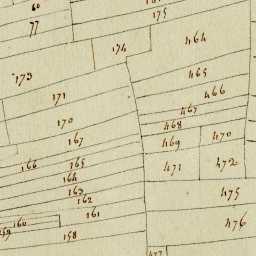 60
77
175
174
464
173
465
171
466
467
170
468
167
469
470
166
165
471
472
164
163
475
162
161
476
160
159
158
477